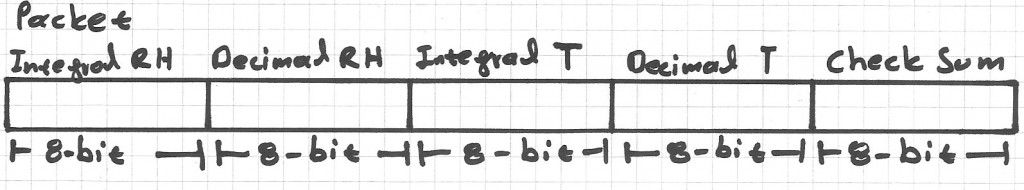 Packet
Integral RH Decimal RH Integral T Decimal T Check Sum
8-bit 8-bit 8-bit 8-bit 8-bit